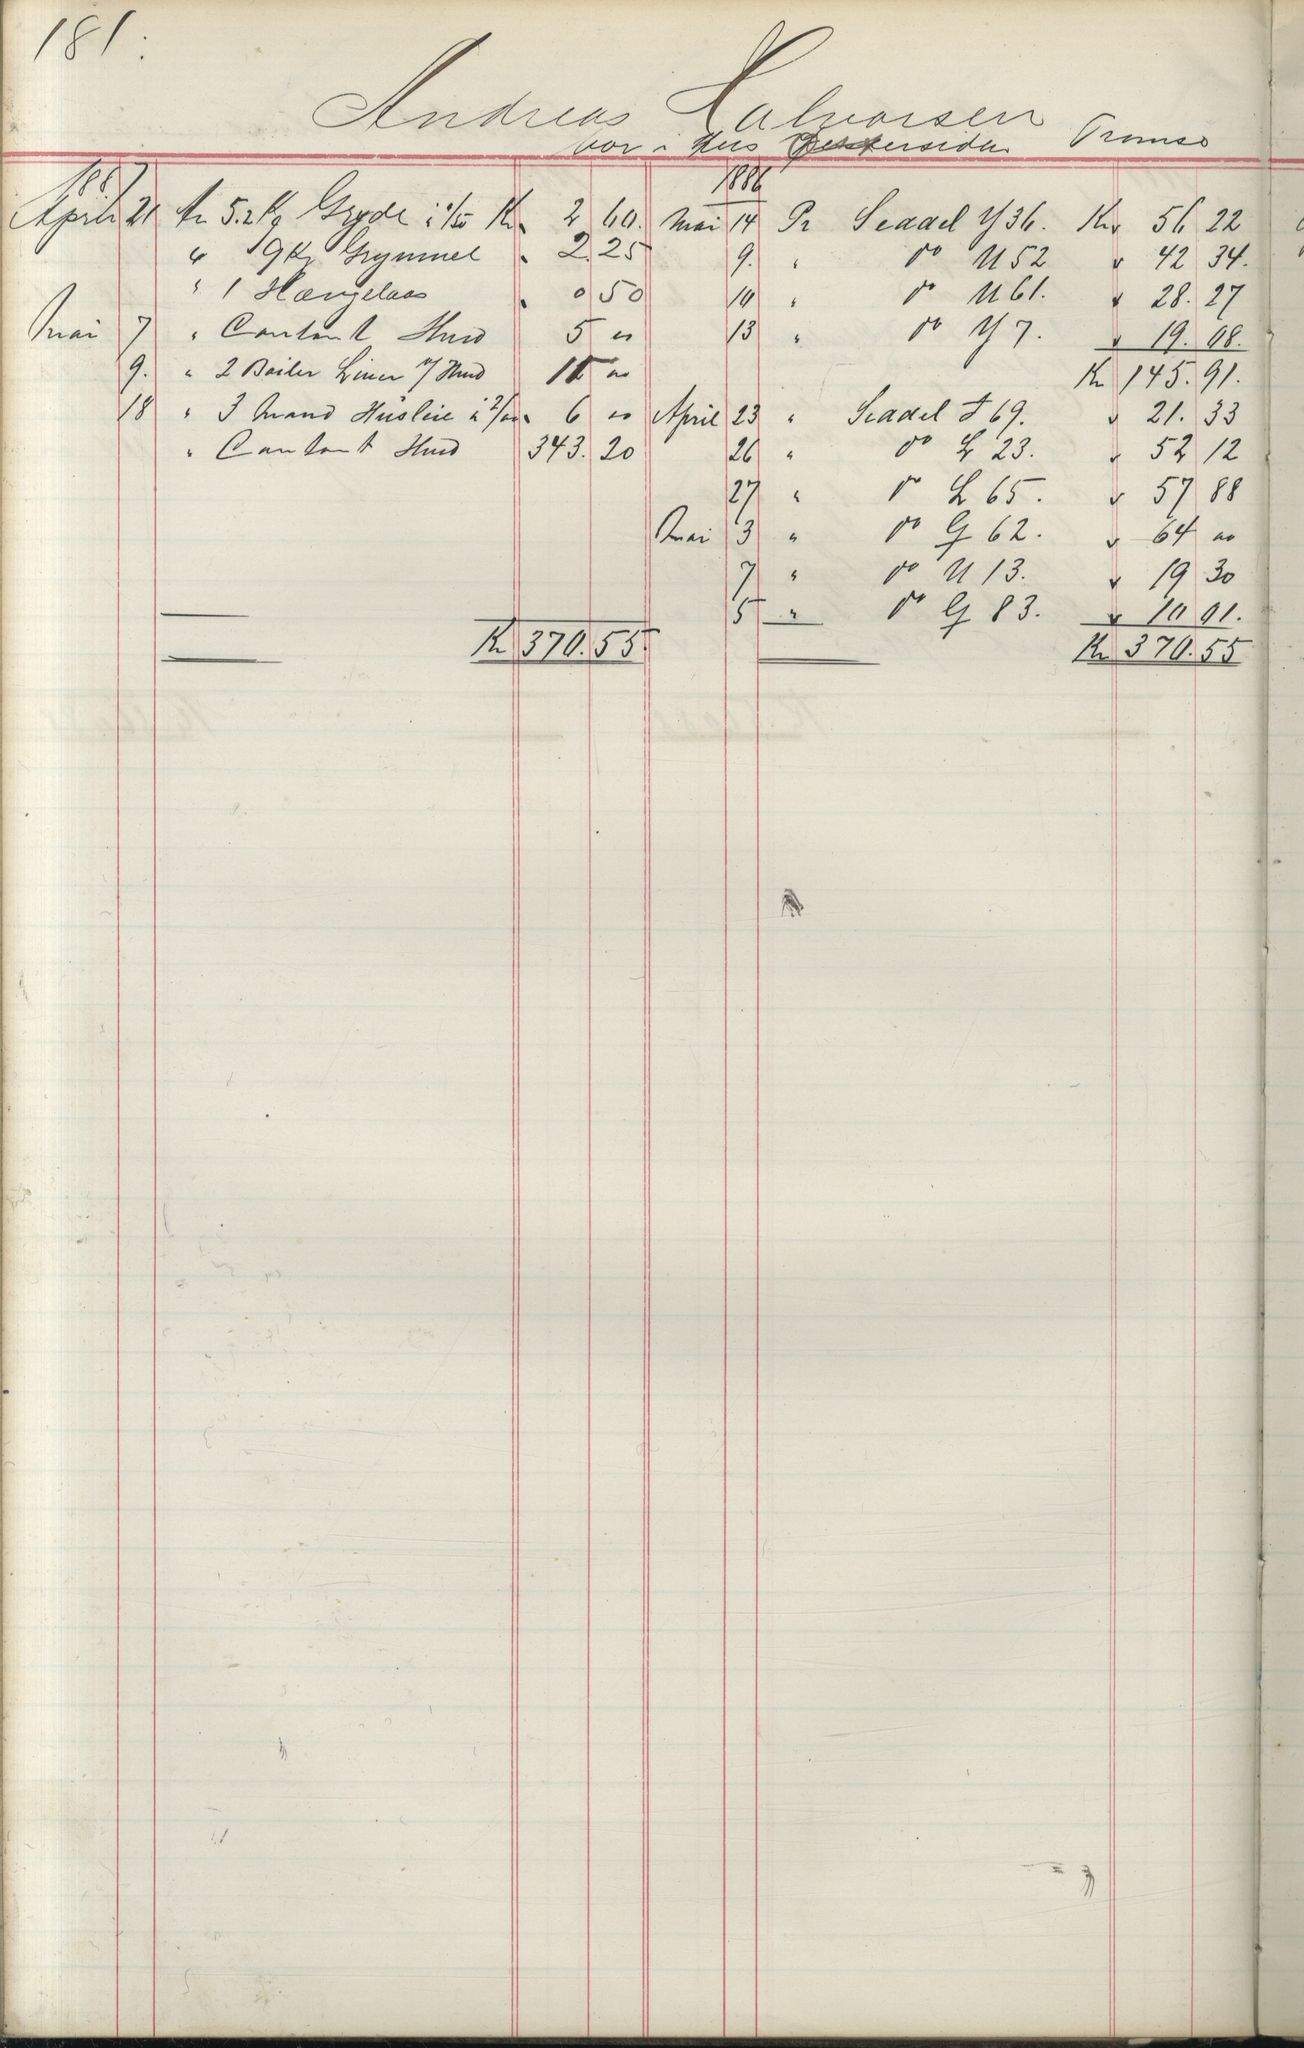 181.
Andreas Halvorsen
bor i Hus Tromsø
1887
April 21 An 5.2 Kg Gryde Kr 2 60.
" 9 Kg 2.25
" 1 Hængelaas " 0 50
Mai 7 " Contant Hmd 5 00
9. " 2 Boiler Liner Hmd 00
18 " 3 Mand Husleie à 2/00 " 6 00
" Contant Hmd 343. 20
Kr 370.55.
1886
Mai 14 Pr Seddel Y 36. Kr 56 22
9. " do U 52 " 42 34.
10 " do U 61. " 28. 27
13 " do Y 7. " 19. 08.
Kr 145. 91.
April 23 " Seddel 69. " 21. 33
26 " do L 23. " 52 12
27 " do L 65. " 57 88
Mai 3 " do G 62. " 64 00
7 " do U 13. " 19 30
5 " do G 83. " 10 01.
Kr 370. 55